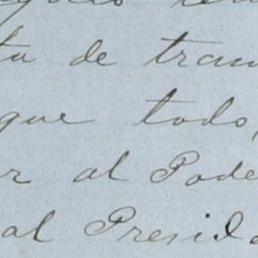 de tran
que todo,
r al Pode
al Presid